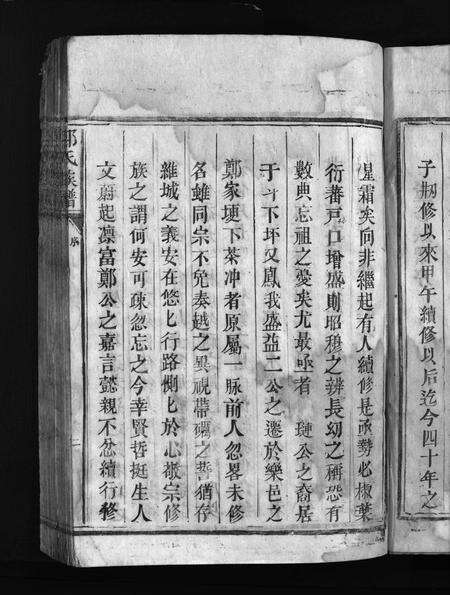 子刱修以來甲午續修以后迄今四十年之
星霜矣向非繼起有人續修是承勢必椒葉
衍蕃戸口增盛則昭穆之辨長幼之稱恐有
數典忘祖之憂矣尤最亟者 璉公之裔居
于斗下坪又鳳我盛益二公之遷於樂邑之
鄭家埂下茶冲者原屬一脉前人忽畧未修
名雖同宗不免秦越之異視帶礪之誓猶存
維城之義安在悠匕行路惻匕於心嶽宗修
族之謂何安可疎忽忘之今幸賢哲挺生人
文蔚起凛富鄭公之嘉言懿親不忿續行修
氏族譜
序